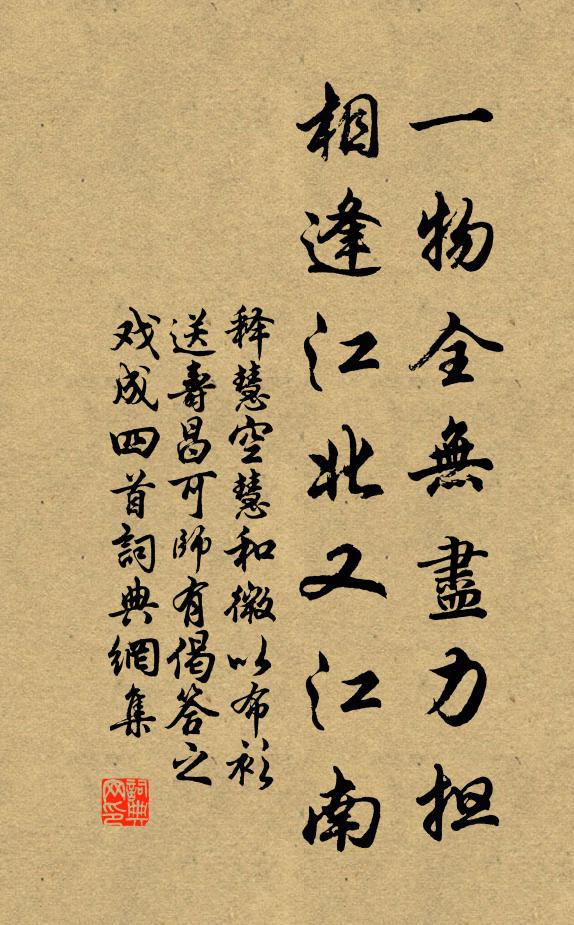 一物全無盡力担
相逢江北又江南
释慧空慧和微以布衫
送壽昌可師有偈答之
戏成四首詞典網集
詞典网印